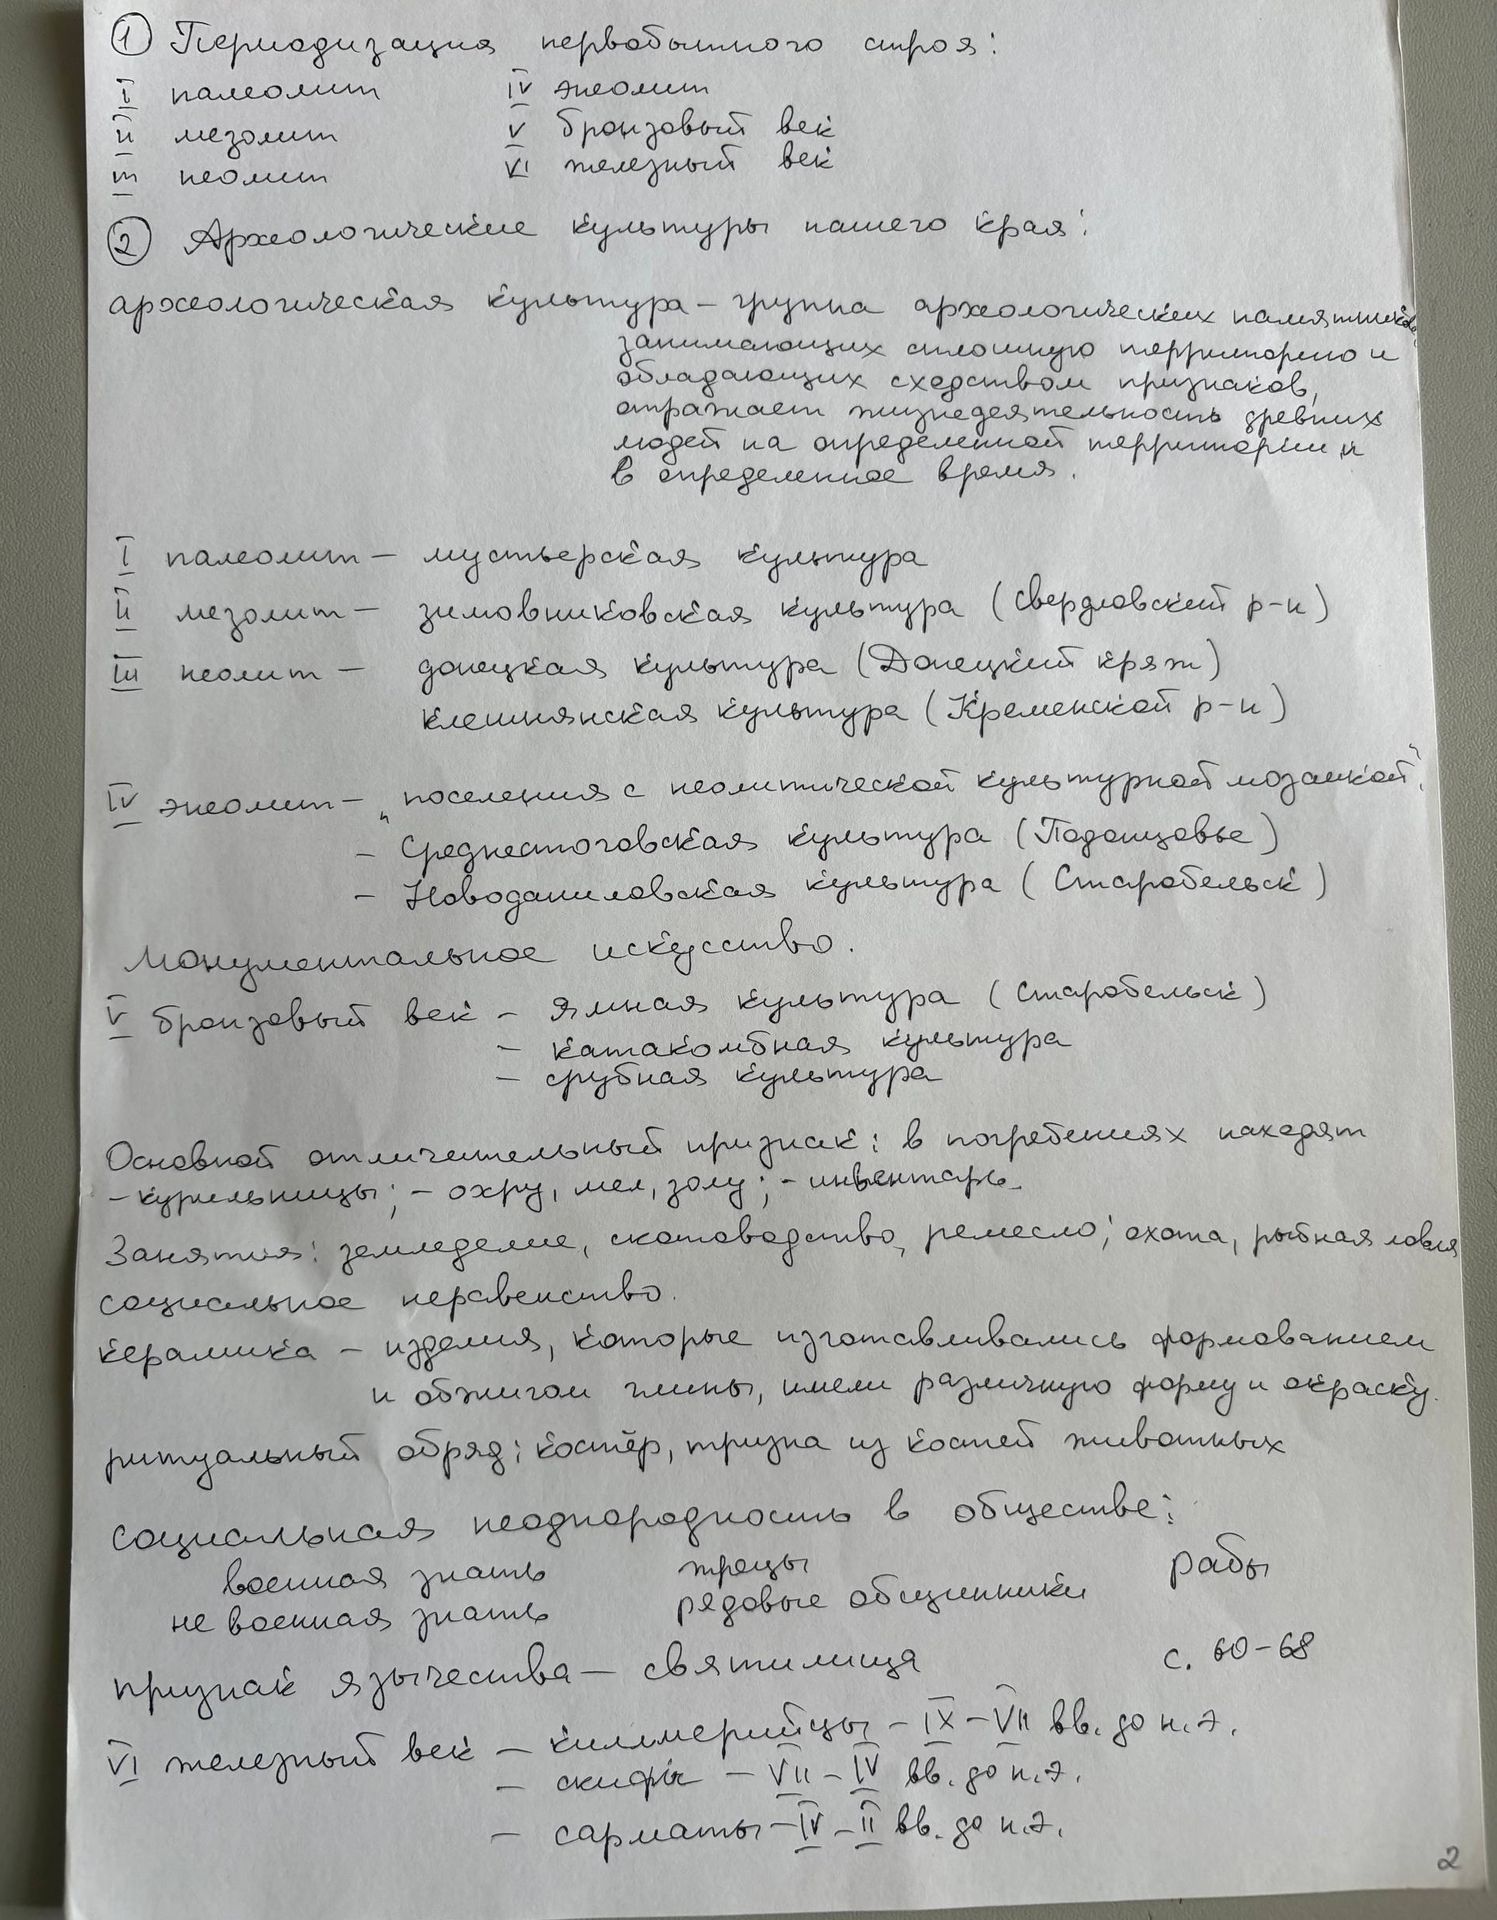 ① Периодизация первобытного строя:
I палеолит IV энеолит
II мезолит V бронзовый век
III неолит VI железный век
② Археологические культуры нашего края:
археологическая культура – группа археологических памятников,
занимающих сплошную территорию и
обладающих сходством признаков,
отражает жизнедеятельность древних
людей на определенной территории и
в определенное время.
I палеолит – мустьерская культура
II мезолит – зимовниковская культура (Свердловский р-н)
III неолит – донецкая культура (Донецкий кряж)
клешнянская культура (Кременской р-н)
IV энеолит – „поселения с неолитической культурной мозаикой“
– Среднестоговская культура (Подонцовье)
– Новоданиловская культура (Старобельск)
Монументальное искусство.
V бронзовый век – Ямная культура (Старобельск)
– катакомбная культура
– срубная культура
Основной отличительный признак: в погребениях находят
– курильницы; – охру, мел, золу; – инвентарь
Занятия: земледелие, скотоводство, ремесло; охота, рыбная ловля
социальное неравенство.
керамика – изделия, которые изготавливались формованием
и обжигом глины, имели различную форму и окраску.
ритуальный обряд: костёр, тризна из костей животных
социальная неоднородность в обществе:
военная знать жрецы рабы
не военная знать рядовые общинники
признак язычества – святилища с. 60-68
VI железный век – киммерийцы – IX – VII вв. до н.э.
– скифы – VII – IV вв. до н.э.
– сарматы – IV – II вв. до н.э.
2